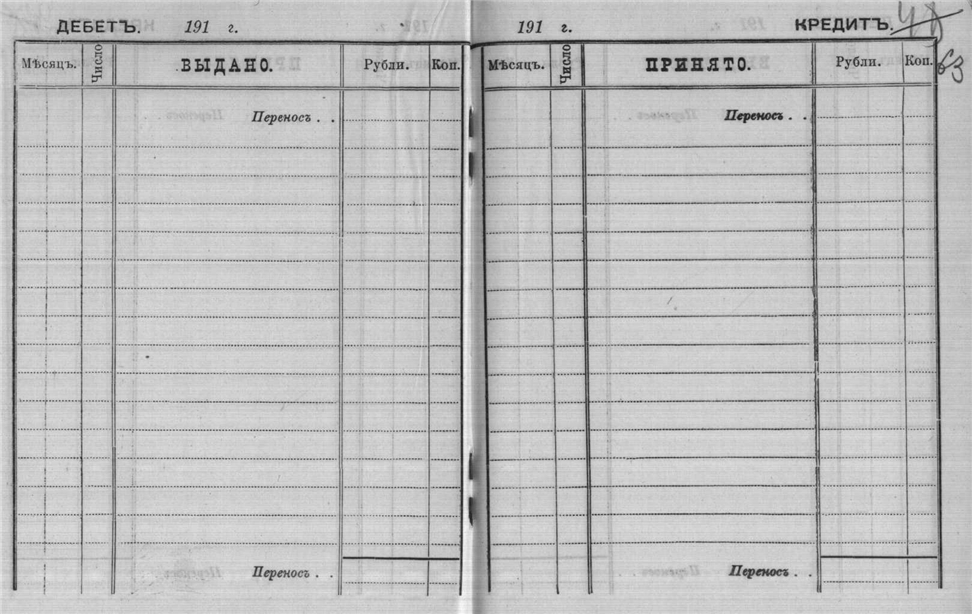 ДЕБЕТЪ. 191 г.
Мѣсяцъ. Число ВЫДАНО. Рубли. Коп.
Переносъ . .
Переносъ . .
191 г. КРЕДИТЪ. 48
63
Мѣсяцъ. Число ПРИНЯТО. Рубли. Коп.
Переносъ . .
Переносъ . .